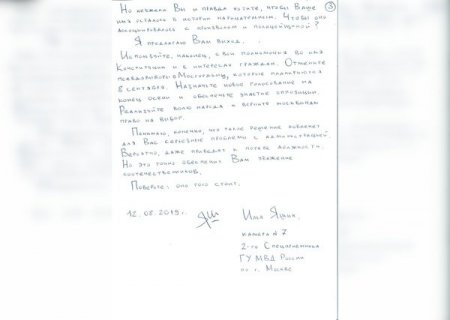 ③
Но неужели Вы и правда хотите, чтобы Ваше
имя осталось в истории нарицательным. Чтобы оно
ассоциировалось с произволом и полицейщиной?
Я предлагаю Вам выход.
Используйте, наконец, свои полномочия во имя
Конституции и в интересах граждан. Отмените
псевдовыборы в Мосгордуму, которые планируются
8 сентября. Назначьте новое голосование на
конец осени и обеспечьте участие оппозиции.
Реализуйте волю народа и верните москвичам
право на выбор.
Понимаю, конечно, что такое решение повлечет
для Вас серьезные проблемы с администрацией
Вероятно, даже приведет к потере должности.
Но это точно обеспечит Вам уважение
соотечественников.
Поверьте: оно того стоит.
12.08.2019г.
Илья Яшин,
камера №7
2-го Спецприемника
ГУ МВД России
по г. Москве